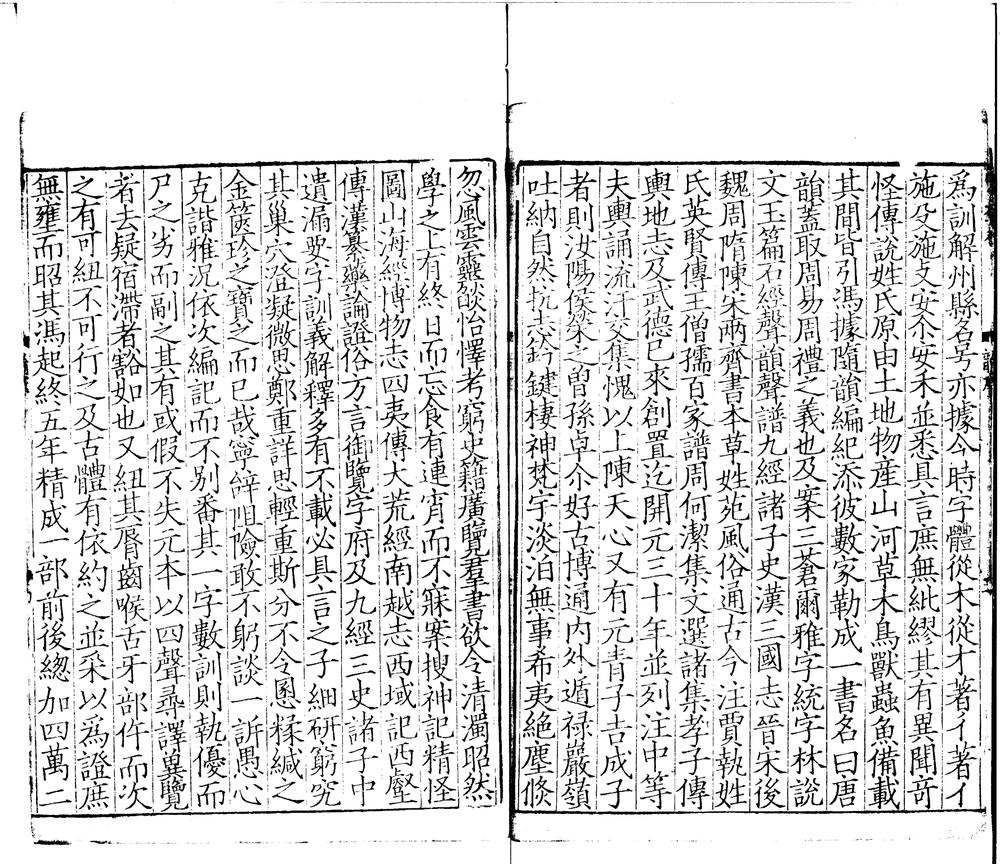 爲訓解州縣名号亦據今時字體從木從才著彳著亻
施殳施攴安尒安禾並悉具言庶無紕繆其有異聞奇
怪傳說姓氏原由土地物産山河草木鳥獸蟲魚備載
其間皆引馮據隨韻編紀添彼數家勒成一書名曰唐
韻蓋取周易周禮之義也及案三蒼爾雅字統字林說
文玉篇石經聲韻聲譜九經諸子史漢三國志晉宋後
魏周隋陳宋兩齊書本草姓苑風俗通古今注賈執姓
氏英賢傳王僧孺百家譜周何潔集文選諸集孝子傳
輿地志及武德已來創置迄開元三十年並列注中等
夫輿誦流汗交集愧以上陳天心又有元青子吉成子
者則汝陽侯榮之曾孫卓尒好古博通內外遁禄巖嶺
吐納自然抗志鈐鍵棲神梵宇淡泊無事希夷絶塵倐
忽風雲靈談怡懌考窮史籍廣覽羣書欲令清濁昭然
學之上有終日而忘食有連宵而不寐案搜神記精怪
圖山海經博物志四夷傳大荒經南越志西域記西壑
傳漢纂藥論證俗方言御覽字府及九經三史諸子中
遺漏要字訓義解釋多有不載必具言之子細研窮究
其巢穴澄凝微思鄭重詳思輕重斯分不令慁糅緘之
金篋珍之寶之而已哉寧辞阻險敢不躬談一訴愚心
克諧雅況依次編記而不別番其一字數訓則執優而
尸之劣而副之其有或假不失元本以四聲尋譯冀覽
者去疑宿滯者豁如也又紐其脣齒喉舌牙部仵而次
之有可紐不可行之及古體有依約之並采以爲證庶
無壅而昭其馮起終五年精成一部前後緫加四萬二